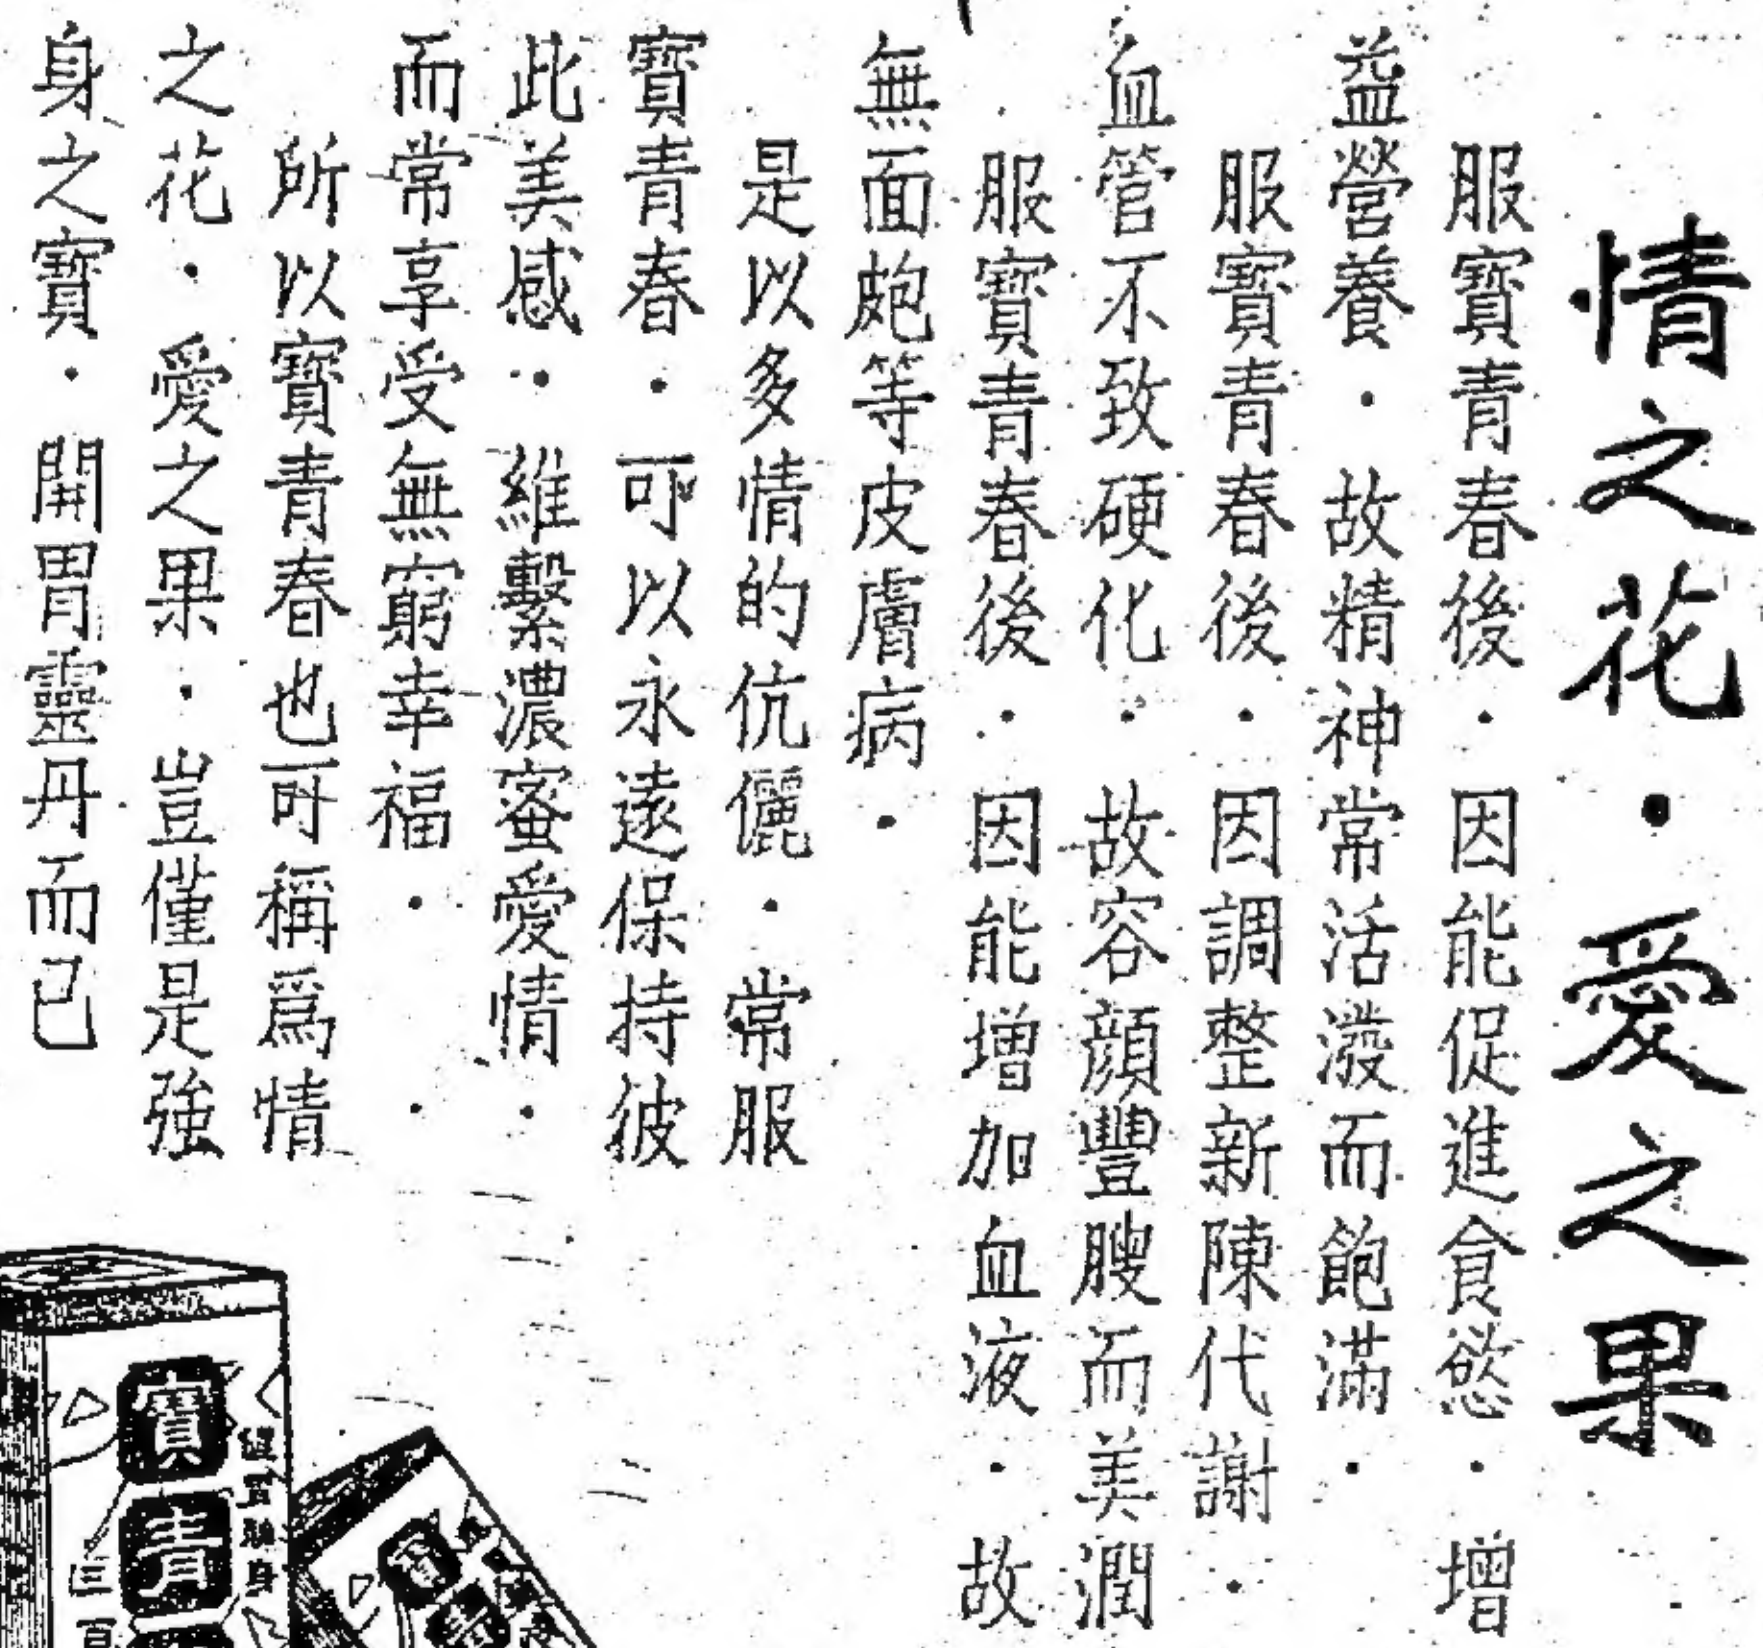 情之花・愛之果
服寶青春後・因能促進食慾・增
益營養・故精神常活潑而飽滿・
服寶青春後・因調整新陳代謝・
血管不致硬化・故容顏豐腴而美潤
服寶青春後・因能增加血液・故
無面皰等皮膚病・
是以多情的伉儷・常服
寶青春・可以永遠保持彼
此美感・維繫濃蜜愛情・
而常享受無窮幸福・
所以寶青春也可稱爲情
之花・愛之果・豈僅是強
身之寶・開胃靈丹而已
寶青
寶青